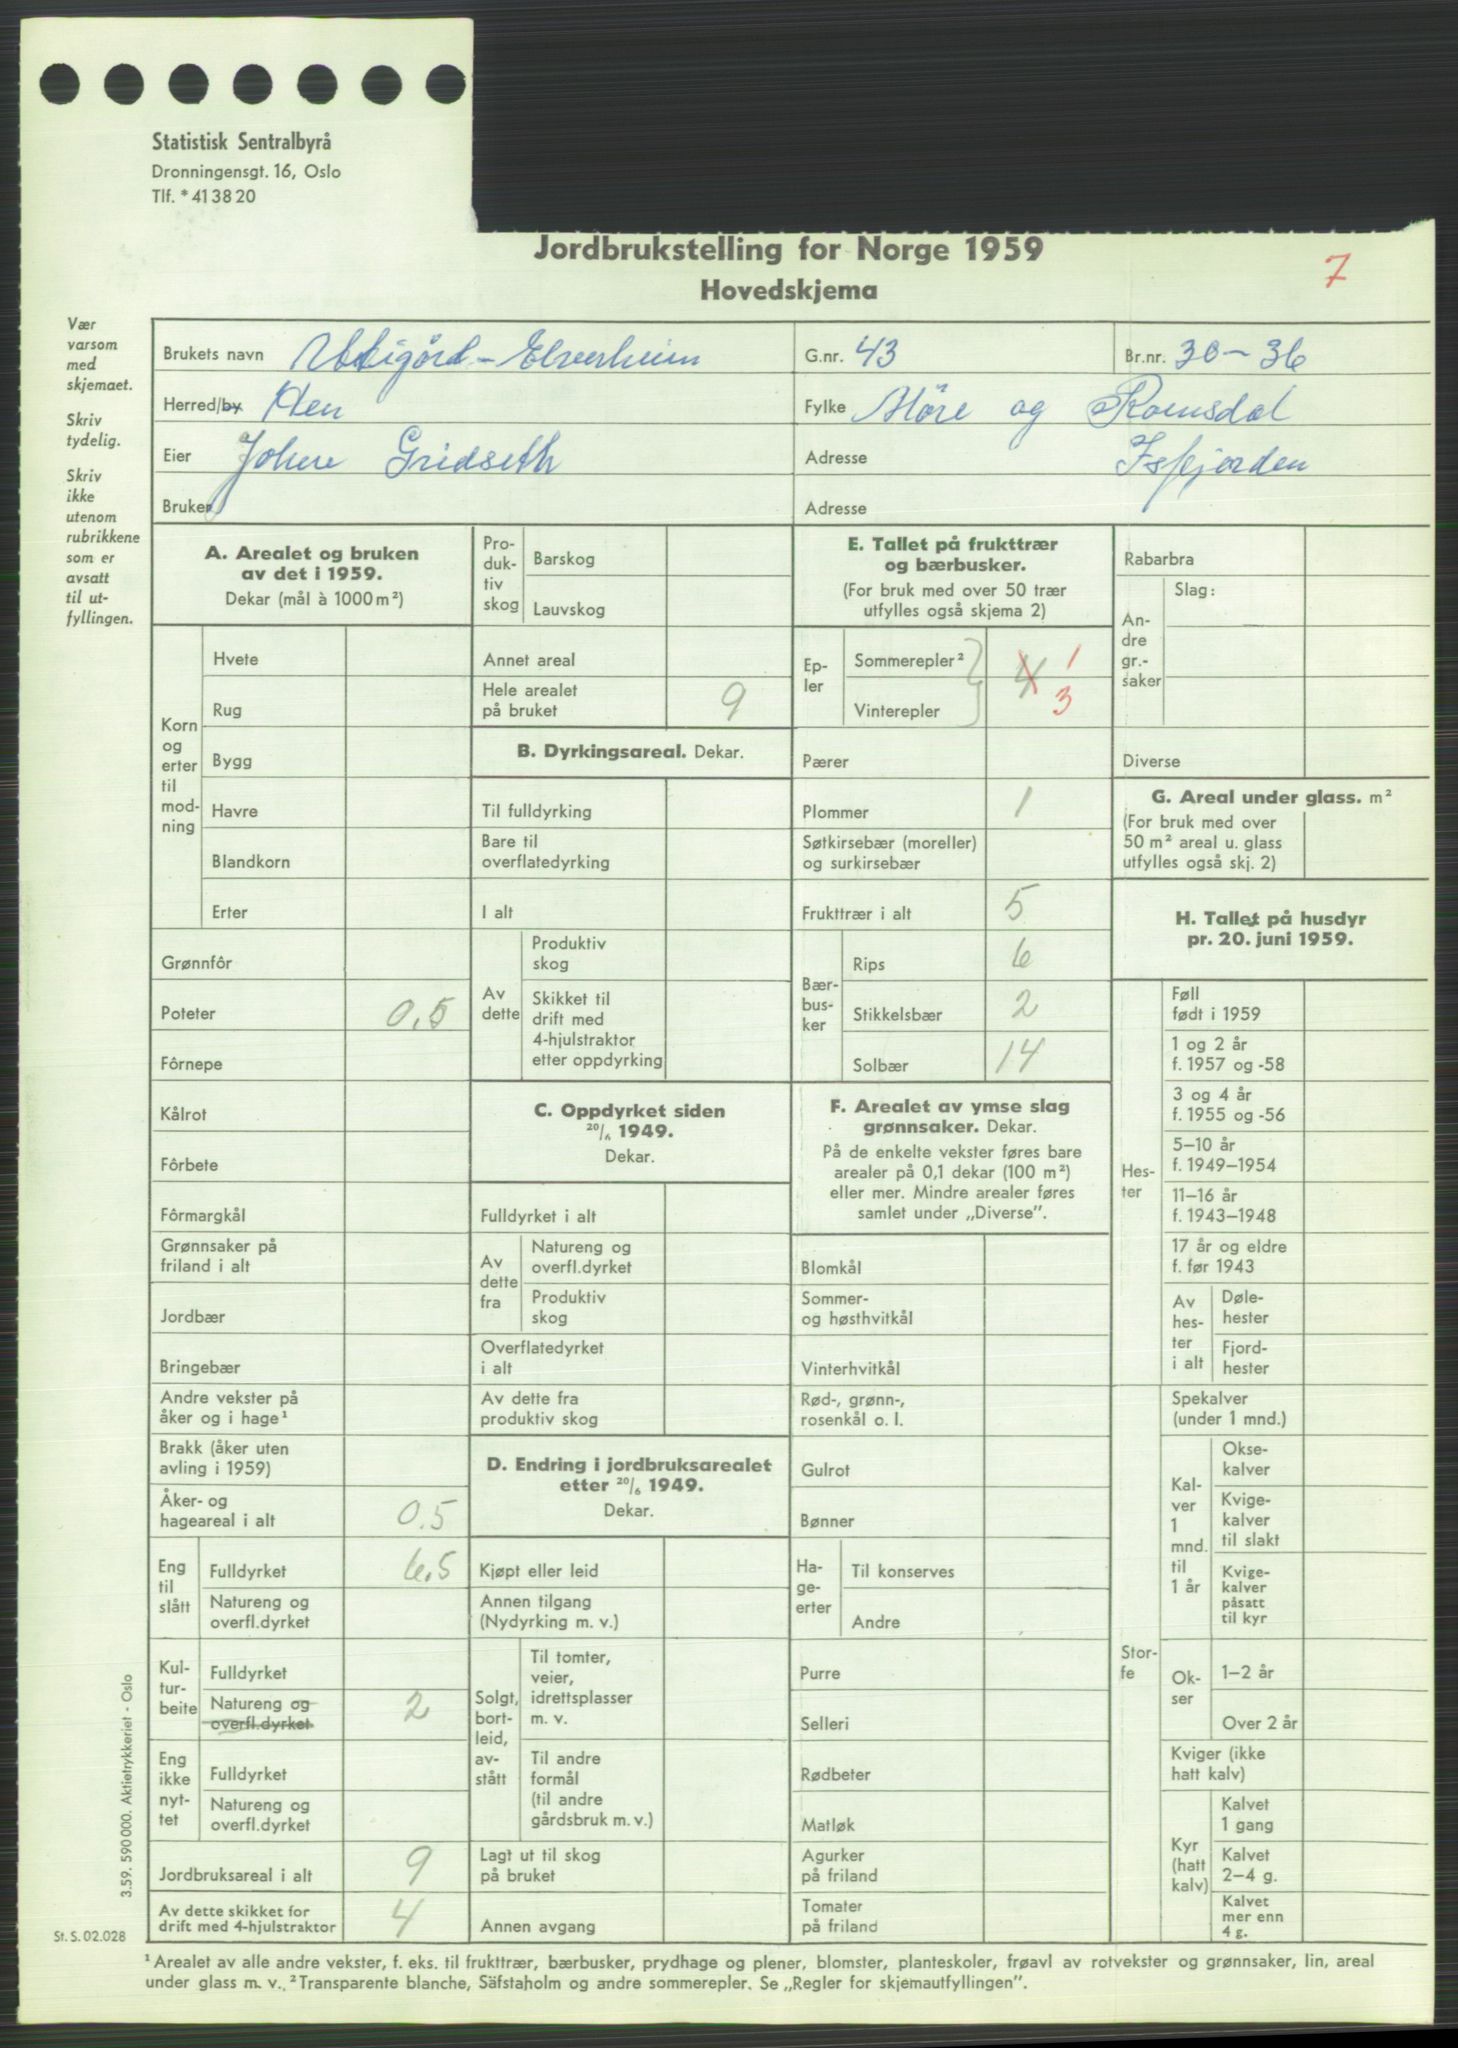 Statistisk Sentralbyrå
Dronningensgt. 16, Oslo
Tlf. * 41 38 20
Jordbrukstelling for Norge 1959
Hovedskjema
7
Vær
varsom
med
skjemaet.
Skriv
tydelig.
Skriv
ikke
utenom
rubrikkene
som er
avsatt
til ut-
fyllingen.
Brukets navn - Elverheim G.nr. 43 Br.nr. 30 - 36
Herred/by Hen Fylke Möre og Romsdal
Eier Johan Gridseth Adresse Isfjorden
Bruker Adresse
A. Arealet og bruken
av det i 1959.
Dekar (mål à 1000 m²)
Korn
og
erter
til
mod-
ning
Hvete
Rug
Bygg
Havre
Blandkorn
Erter
Grønnfôr
Poteter 0.5
Fôrnepe
Kålrot
Fôrbete
Fôrmargkål
Grønnsaker på
friland i alt
Jordbær
Bringebær
Andre vekster på
åker og i hage¹
Brakk (åker uten
avling i 1959)
Åker- og
hageareal i alt 0.5
Eng
til
slått
Fulldyrket 6.5
Natureng og
overfl.dyrket
Kul-
tur-
beite
Fulldyrket
Natureng og
overfl.dyrket 2
Eng
ikke
nyt-
tet
Fulldyrket
Natureng og
overfl.dyrket
Jordbruksareal i alt 9
Av dette skikket for
drift med 4-hjulstraktor 4
Pro-
duk-
tiv
skog
Barskog
Lauvskog
Annet areal
Hele arealet
på bruket 9
B. Dyrkingsareal. Dekar.
Til fulldyrking
Bare til
overflatedyrking
I alt
Av
dette
Produktiv
skog
Skikket til
drift med
4-hjulstraktor
etter oppdyrking
C. Oppdyrket siden
20/6 1949.
Dekar.
Fulldyrket i alt
Av
dette
fra
Natureng og
overfl.dyrket
Produktiv
skog
Overflatedyrket
i alt
Av dette fra
produktiv skog
D. Endring i jordbruksarealet
etter 20/6 1949.
Dekar.
Kjøpt eller leid
Annen tilgang
(Nydyrking m. v.)
Solgt,
bort-
leid,
av-
stått
Til tomter,
veier,
idrettsplasser
m. v.
Til andre
formål
(til andre
gårdsbruk m. v.)
Lagt ut til skog
på bruket
Annen avgang
E. Tallet på frukttrær
og bærbusker.
(For bruk med over 50 trær
utfylles også skjema 2)
Ep-
ler
Sommerepler² 4 1
Vinterepler 3
Pærer
Plommer 1
Søtkirsebær (moreller)
og surkirsebær
Frukttrær i alt 5
Bær-
bus-
ker
Rips 6
Stikkelsbær 2
Solbær 14
F. Arealet av ymse slag
grønnsaker. Dekar.
På de enkelte vekster føres bare
arealer på 0,1 dekar (100 m²)
eller mer. Mindre arealer føres
samlet under „Diverse”.
Blomkål
Sommer-
og høsthvitkål
Vinterhvitkål
Rød-, grønn-,
rosenkål o. l.
Gulrot
Bønner
Ha-
ge-
erter
Til konserves
Andre
Purre
Selleri
Rødbeter
Matløk
Agurker
på friland
Tomater
på friland
Rabarbra
An-
dre
gr.-
saker
Slag:
Diverse
G. Areal under glass. m²
(For bruk med over
50 m² areal u. glass
utfylles også skj. 2)
H. Tallet på husdyr
pr. 20. juni 1959.
Hes-
ter
Føll
født i 1959
1 og 2 år
f. 1957 og -58
3 og 4 år
f. 1955 og -56
5–10 år
f. 1949–1954
11–16 år
f. 1943–1948
17 år og eldre
f. før 1943
Av
hes-
ter
i alt
Døle-
hester
Fjord-
hester
Stor-
fe
Spekalver
(under 1 mnd.)
Kal-
ver
1
mnd.
til
1 år
Okse-
kalver
Kvige-
kalver
til slakt
Kvige-
kalver
påsatt
til kyr
Ok-
ser
1–2 år
Over 2 år
Kviger (ikke
hatt kalv)
Kyr
(hatt
kalv)
Kalvet
1 gang
Kalvet
2–4 g.
Kalvet
mer enn
4 g.
3.59. 590 000. Aktietrykkeriet - Oslo
St. S. 02.028
¹ Arealet av alle andre vekster, f. eks. til frukttrær, bærbusker, prydhage og plener, blomster, planteskoler, frøavl av rotvekster og grønnsaker, lin, areal
under glass m. v. ² Transparente blanche, Säfstaholm og andre sommerepler. Se „Regler for skjemautfyllingen”.